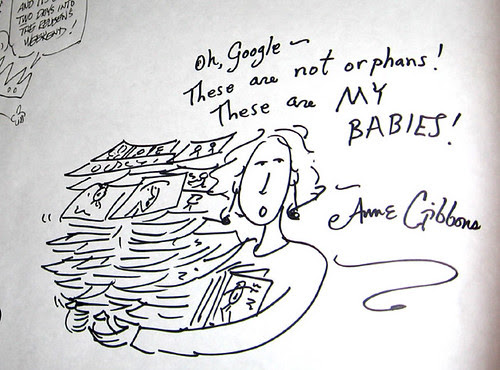 AND IT'S
TWO DAYS INTO
THE REUBENS
WEEKEND!
Oh, Google —
These are not orphans!
These are MY
BABIES!
Anne Gibbons